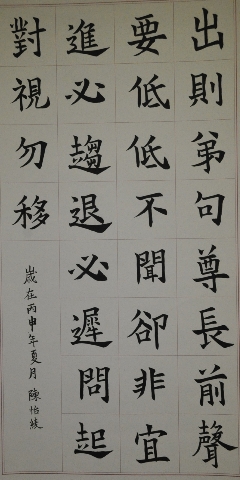 出則弟句尊長前聲
要低低不聞卻非宜
進必趨退必遲問起
對視勿移
歲在丙申年夏月 陳怡綾